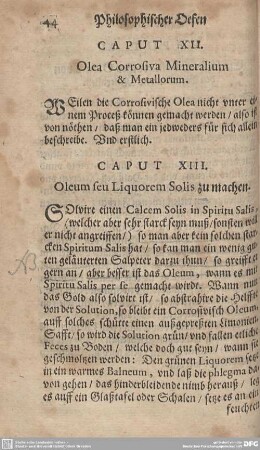 44 Philosophischer Oefen
CAPUT XII.
Olea Corrosiva Mineralium
& Metallorum.
WEilen die Corrosivische Olea nicht vnter ei-
nem Proceß können gemacht werden / also ist
von nöthen / daß man ein jedweders für sich allein
beschreibe. Vnd erstlich.
CAPUT XIII.
Oleum seu Liquorem Solis zu machen.
SOlvire einen Calcem Solis in Spiritu Salis,
(welcher aber sehr starck seyn muß / sonsten will
er nicht angreiffen /) so man aber kein solchen star-
cken Spiritum Salis hat / so kan man ein wenig gu-
ten geläuterten Salpeter darzu thun / so greifft es
gern an / aber besser ist das Oleum, wann es mit
Spiritu Salis per se gemacht wirdt. Wann nun
das Gold also solvirt ist / so abstrahire die Helffte
von der Solution, so bleibt ein Corrosivisch Oleum,
auff solches schütte einen außgepreßten Limonien-
Safft / so wird die Solution grün / vnd fallen etliche
Feces zu Boden / welche doch gut seyn / wann sie
geschmoltzen werden: Den grünen Liquorem setz
in ein warmes Balneum, vnd laß die phlegma da-
von gehen / das hinderbleibende nimb herauß / leg
es auff ein Glaßtafel oder Schalen / setze es an ein
feuchten